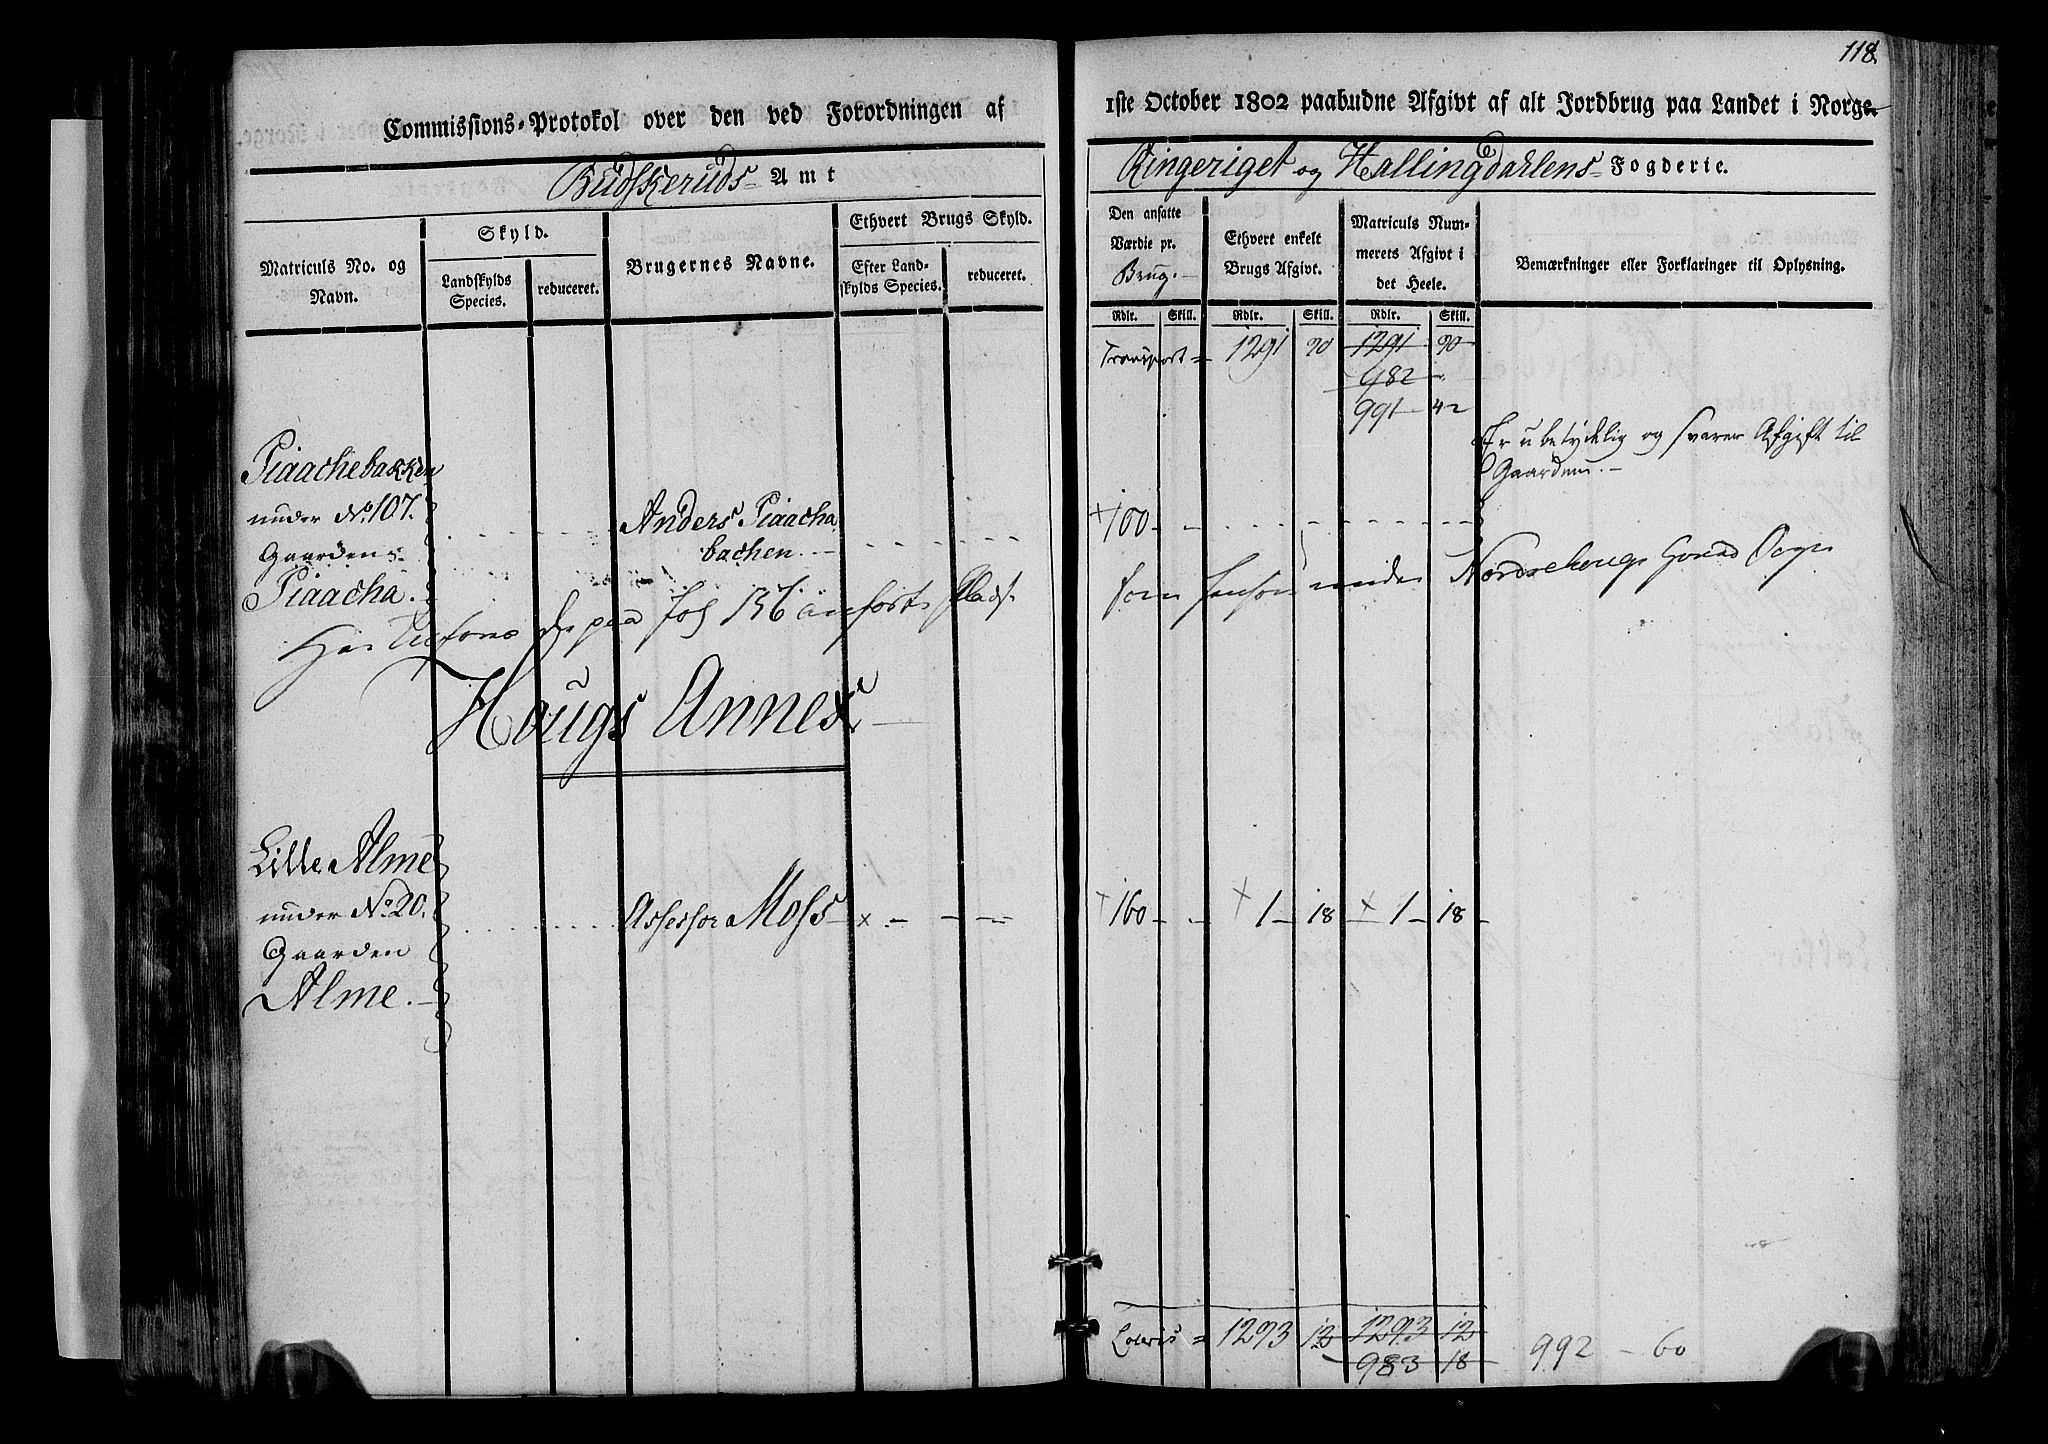 118.
Commissions-Protokol over den ved Forordningen af
1ste October 1802 paabudne Afgivt af alt Jordbrug paa Landet i Norge.
Budskeruds Amt
Ringeriget og Hallingdahlens Fogderie.
Matriculs No. og Navn.
Skyld.
Landskylds Species.
reduceret.
Brugernes Navne.
Ethvert Brugs Skyld.
Efter Land-
skylds Species.
reduceret.
Den ansatte
Værdie pr.
Brug.
Ethvert enkelt
Brugs Afgivt.
Matriculs Num-
merets Afgivt i
det Heele.
Bemærkninger eller Forklaringer til Oplysning.
Rdlr. Skill. Rdlr. Skill. Rdlr. Skill.
Transport = 1291 90 1291 90
982
991 42
Er ubetydelig og svarer Afgift til
Gaarden.
Piaachebakken
under No. 107.
Gaarden
Piaacha.
Anders Piaacha
bachen.
100
paa Fol 136 anførte Plads
som under
Hougs Annex
Lille Alme
under No. 20.
Gaarden
Alme.
Assessor Moss
160 1 18 1 18
Lateris = 1293 12 1293 12
983 18
992 - 60